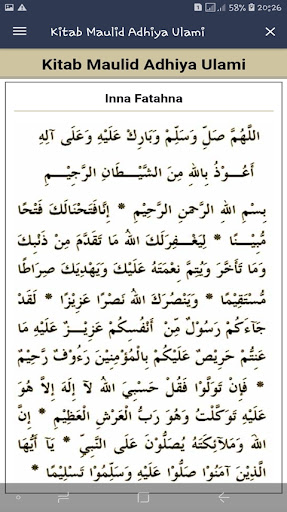 58% 20:26
Kitab Maulid Adhiya Ulami
Kitab Maulid Adhiya Ulami
Inna Fatahna
اَللّٰهُمَّ صَلِّ وَسَلِّمْ وَبَارِكْ عَلَيْهِ وَعَلَى آلِهِ
أَعُـوْذُ بِاللهِ مِنَ الشَّيْـطَانِ الرَّجِيْـمِ
بِسْمِ اللهِ الرَّحْمنِ الرَّحِيْمِ * إِنَّافَتَحْنَالَكَ فَتْحًا
مُبِيْـنًا * لِيَغْفِرَلَكَ اللهُ مَا تَقَدَّمَ مِنْ ذَنْبِكَ
وَمَا تَأَخَّرَ وَيُتِمَّ نِعْمَتَهُ عَلَيْكَ وَيَهْدِيَكَ صِرَاطًا
مُسْتَقِيْمًا * وَيَنْصُرَكَ اللهُ نَصْرًا عَزِيْزًا * لَقَدْ
جَآءَكُمْ رَسُوْلٌ مِنْ أَنْفُسِكُمْ عَزِيْـزٌ عَلَيْهِ مَا
عَنِتُّمْ حَرِيْصٌ عَلَيْكُمْ بِالْمُؤْمِنِيْنَ رَءُوْفٌ رَحِيْمٌ
* فَإِنْ تَوَلَّوْا فَقُلْ حَسْبِيَ اللهُ لآ إِلَهَ إِلاَّ هُوَ
عَلَيْهِ تَوَكَّلْتُ وَهُوَ رَبُّ الْعَرْشِ الْعَظِيْمِ * إِنَّ
اللهَ وَمَلآئِكَتَهُ يُصَلُّوْنَ عَلَى النَّبِيِّ * يَآ أَيُّهَا
الَّذِيْنَ آمَنُوْا صَلُّوْا عَلَيْهِ وَسَلِّمُوْا تَسْلِيْمًا *